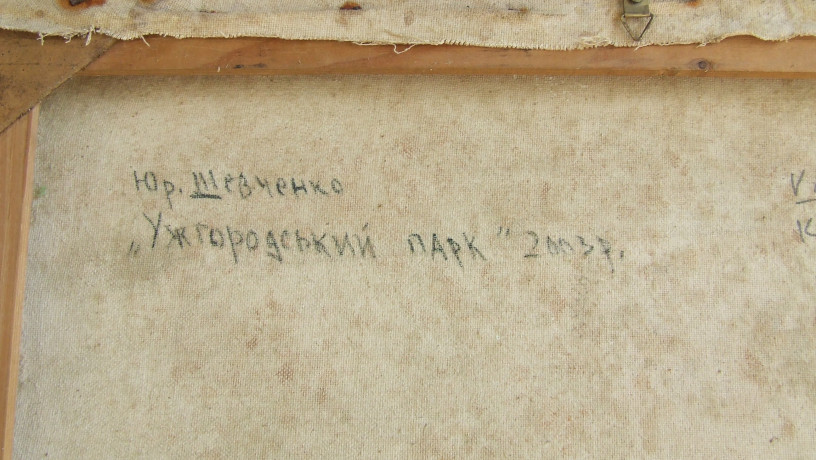 Юр. Шевченко
„Ужгородський парк" 2003р.